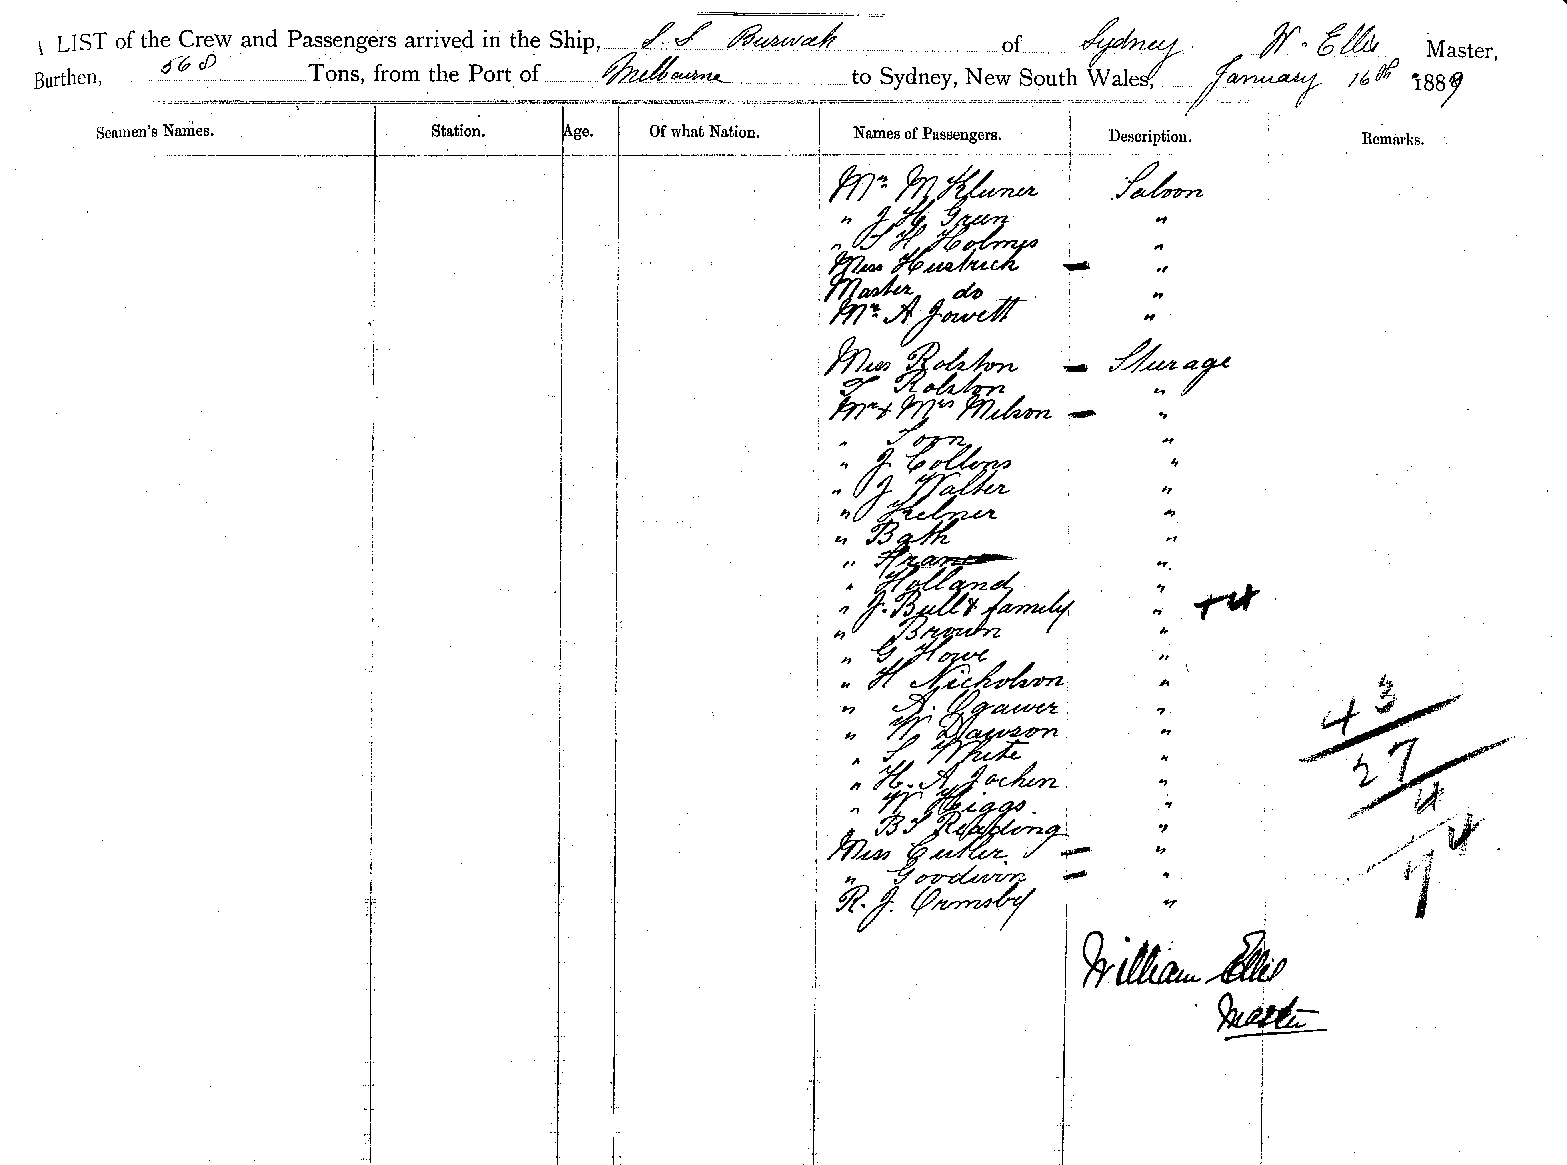 LIST of the Crew and Passengers arrived in the Ship, S. S Burwah of Sydney W. Ellis Master,
Burthen, 568 Tons, from the Port of Melbourne to Sydney, New South Wales, January 16th 1889
Seamen's Names. Station. Age. Of what Nation. Names of Passengers. Description. Remarks.
Mr M Kluner Saloon
" J H Green "
" S H Holmes "
Miss Hustrich "
Master do "
Mr A Jowett "
Miss Rolston Steerage
T Rolston "
Mr & Mrs Melson "
" Soon "
" J Collons "
" J Walter "
" Kelner "
" Bath "
" "
" Holland "
" J. Bull & family " +4
" Brown "
" G Howe "
" H Nicholson "
" A. Ogawer "
" W Dawson "
" S White "
" H. A Jochen "
" W Higgs "
" B S Redding "
Miss Cutler "
" Goodwin "
R. J. Ormsby "
43
27
4
4
7
William Ellis
Master